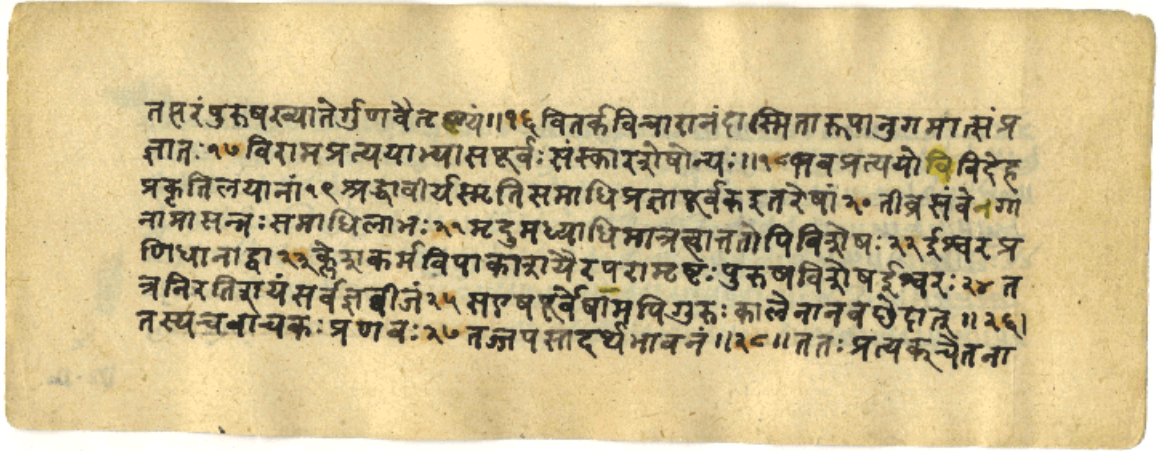 तत्परंपुरुषख्यातेर्गुणवैतृष्ण्यं॥१६वितर्कविचारानंदास्मितारूपानुगमात्संप्र
ज्ञातः१७विरामप्रत्ययाभ्यासपूर्वः संस्कारशेषोन्यः॥१८भवप्रत्ययोविविदेह
प्रकृतिलयानां१९श्रद्धावीर्यस्मृतिसमाधिप्रज्ञापूर्वकइतरेषां२०तीव्रसंवेगा
नामासन्नःसमाधिलाभः२१मृदुमध्याधिमात्रत्वात्ततोपिविशेषः२२ईश्वरप्र
णिधानाद्वा२३क्लेशकर्मविपाकाशयैरपरामृष्टःपुरुषविशेषईश्वरः२४त
त्रनिरतिशयंसर्वज्ञबीजं२५सएषपूर्वेषामपिगुरुःकालेनानवछेदात्॥२६।
तस्यचवाचकःप्रणवः२७तज्जपस्तदर्थभावनं॥२८॥ततःप्रत्यक्चेतना